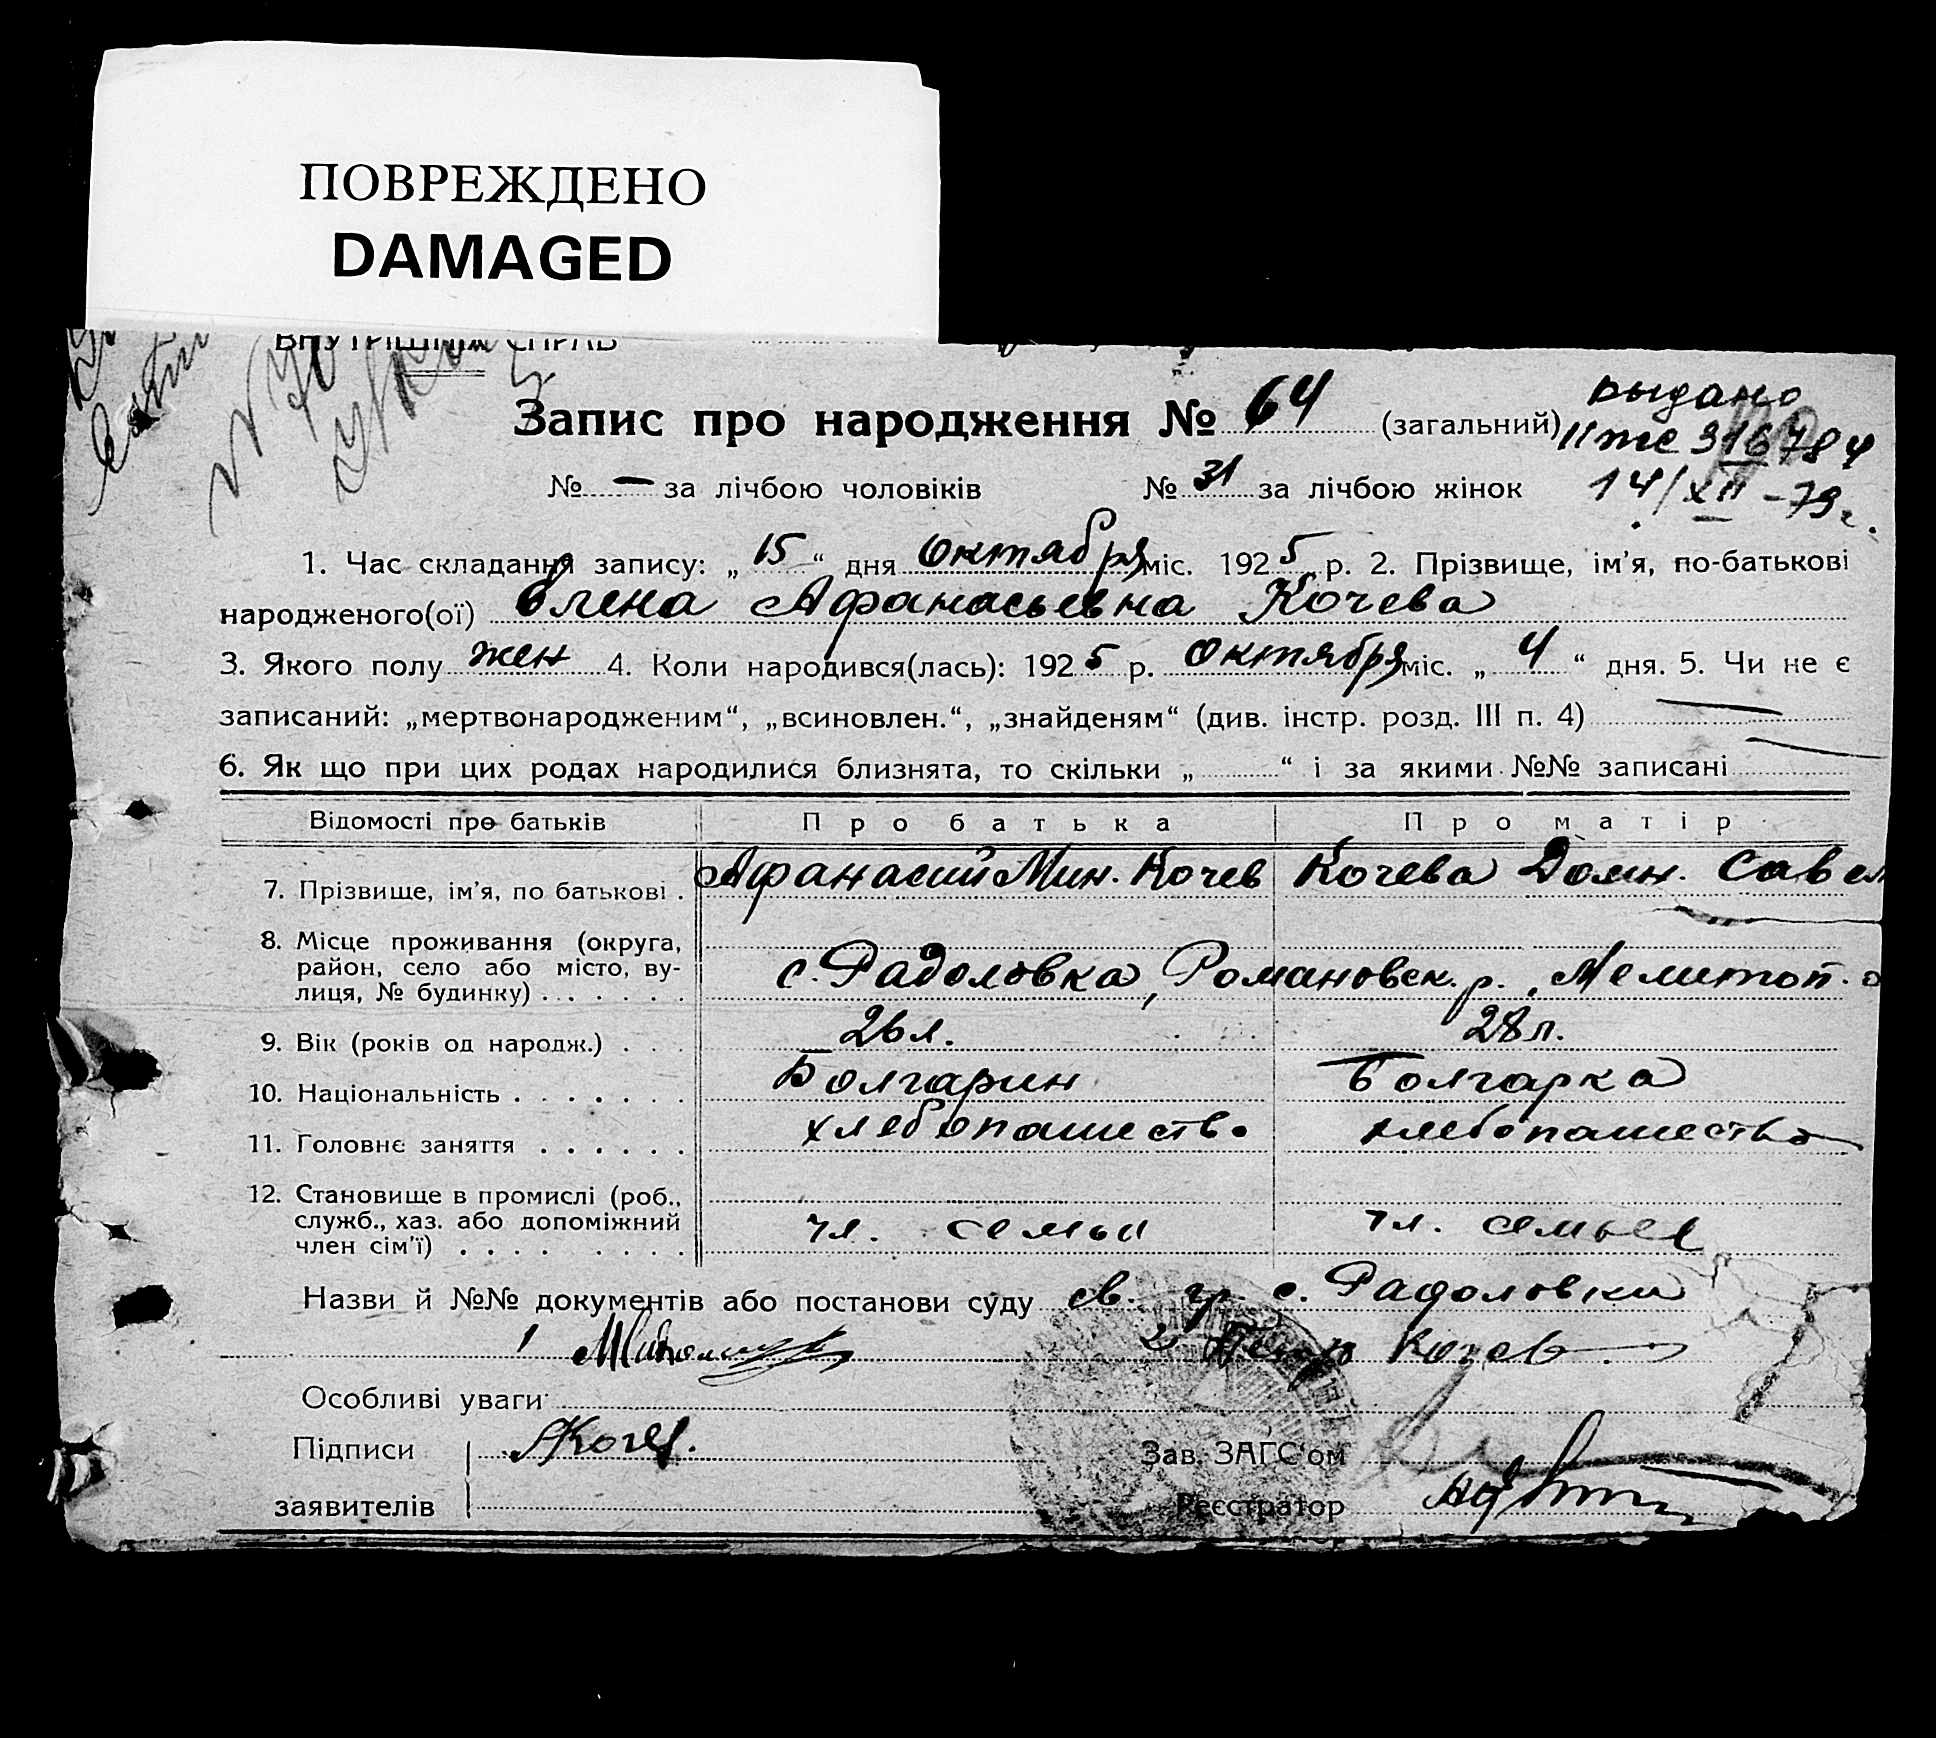 ПОВРЕЖДЕНО
DAMAGED
ВНУТРІШНІХ СПРАВ
Запис про народження № 64 (загальний)
выдано
II же 316784
14/XII-79г.
№ — за лічбою чоловіків № 31 за лічбою жінок
1. Час складання запису: „15“ дня октября міс. 1925 р. 2. Прізвище, ім'я, по-батькові
народженого(ої) Елена Афанасьевна Кочева
3. Якого полу жен 4. Коли народився(лась): 1925 р. октября міс. „4“ дня. 5. Чи не є
записаний: „мертвонародженим“, „всиновлен.“, „знайденям“ (див. інстр. розд. III п. 4) —
6. Як що при цих родах народилися близнята, то скільки „ “ і за якими №№ записані —
Відомості про батьків Про батька Про матір
7. Прізвище, ім'я, по батькові . Афанасий Мин. Кочев Кочева Домн. Савел
8. Місце проживання (округа,
район, село або місто, ву-
лиця, № будинку) . . . . . . с. Радоловка, Романовск. р., Мелитоп. о
9. Вік (років од народж.) . . . 26 л. 28 л.
10. Національність . . . . . . . Болгарин Болгарка
11. Головнє заняття . . . . . . хлебопашество хлебопашество
12. Становище в промислі (роб.,
служб., хаз. або допоміжний
член сім'ї) . . . . . . . . чл. семьи чл. семьи
Назви й №№ документів або постанови суду св. гр. с. Радоловки
1 2 Петр Кочев
Особливі уваги
Підписи АКочев. Зав. ЗАГС'ом
заявителів Реєстратор